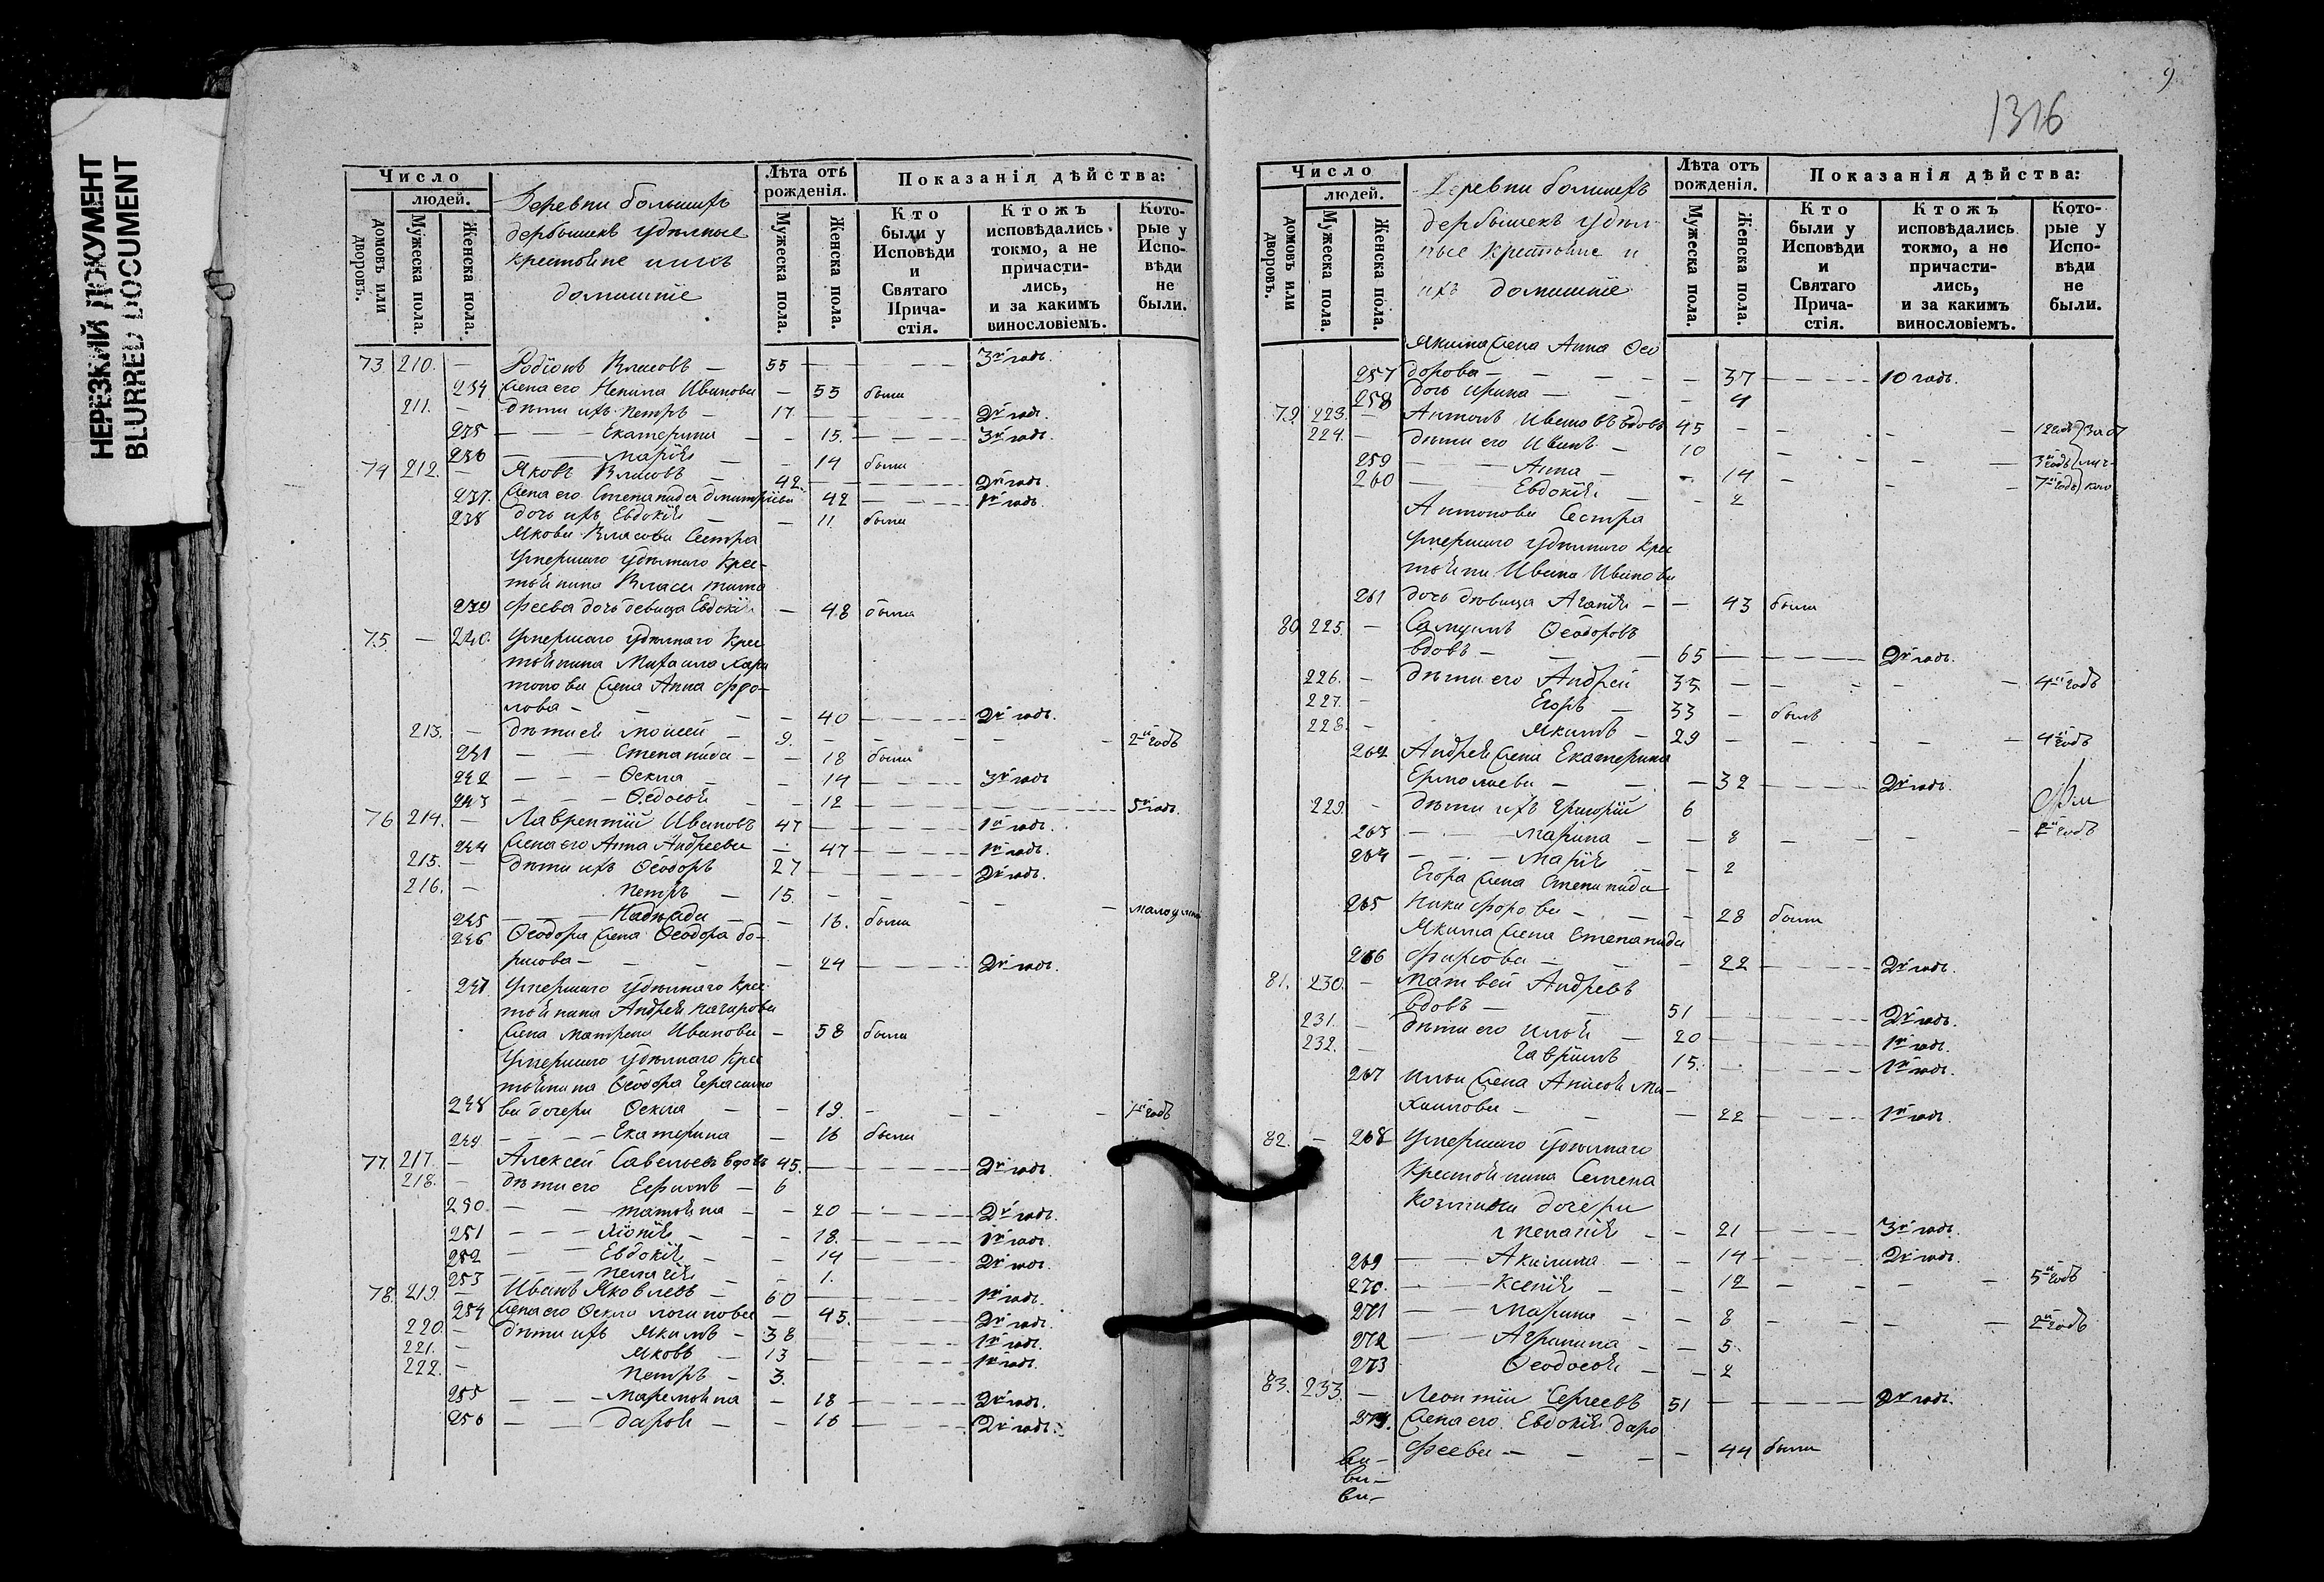 НЕРЕЗКИЙ ДОКУМЕНТ
BLURRED DOCUMENT
Число
людей.
домовъ или дворовъ.
Мужеска пола.
Женска пола.
Деревни большихъ
дербышекъ удѣльные
крестьяне и ихъ
домашніе
Лѣта отъ рожденія.
Мужеска пола.
Женска пола.
Показанія дѣйства:
Кто были у Исповѣди и Святаго Прича-стія.
Ктожъ исповѣдались токмо, а не причасти-лись, и за какимъ винословіемъ.
Кото-рые у Испо-вѣди не были.
73 210. — Родіонъ Власовъ — 55 — 3й годъ.
234 Жена его Ненила Иванова — 55 была
211. — дѣти ихъ Петръ — 17 — 2й годъ.
235 — Екатерина — 15. — 3й годъ.
236 — Марія — 14 была
74 212. — Яковъ Власовъ — 42. — 2й годъ.
237. Жена его Степанида Дмитріева 42 — 1й годъ.
238 дочь ихъ Евдокія — 11. была
Якова Власова Сестра
Умершаго удѣльнаго Крес-
тьянина Власа Тимо
239 феева дочь девица Евдокія — 48 была
75. — 240. Умершаго удѣльнаго Крес
тьянина Михаила Хари
тонова Жена Анна Фро-
лова — 40 — 2й годъ.
213. — дѣти ея Моисей — 9. — 2й годъ
241 — Степанида — 18 была
242 — Ѳекла — 14 — 3й годъ
243 — Ѳедосья — 12 — 5й годъ.
76 214. — Лаврентій Ивановъ 47 — 1й годъ.
244 Жена его Анна Андреева — 47 — 1й годъ.
215. — дѣти ихъ Ѳеодоръ 27 — 2й годъ.
216. — Петръ — 15. — малоум
245 — Надѣжда — 16. была
246 Ѳеодора Жена Ѳеодора Бо-
рисова — 24 — 2й годъ.
247 Умершаго удѣльнаго Крес
тьянина Андрея
Жена Матрена Иванова — 58 была
Умершаго удѣльнаго Крес
тьянина Ѳеодора Герасимо
248 ва дочери Ѳекла — 19. — годъ
249 — Екатерина — 16 была
77. 217. — Алексей Савельевъ вдовъ 45. — 2й годъ.
218. — дѣти его Ефимъ — 6
250. — Татьяна — 20 — 2й годъ.
251 — — 18. — 1й годъ.
252 — Евдокія — 14 — 2й годъ.
253 — Пелагія — 1.
78. 219. — Иванъ Яковлевъ — 60 — 1й годъ.
254 Жена его Ѳекла Логинова — 45. — 2й годъ.
220. — дѣти ихъ Якимъ — 38 — 1й годъ.
221. — Яковъ — 13 — 1й годъ.
222. — Петръ — 3.
255 — Маремьяна — 18 — 2й годъ.
256 — Дарья — 16 — 2й годъ.
9
1316
Число
людей.
домовъ или дворовъ.
Мужеска пола.
Женска пола.
Деревни большихъ
дербышекъ удѣль
ные крестьяне и
ихъ домашніе
Лѣта отъ рожденія.
Мужеска пола.
Женска пола.
Показанія дѣйства:
Кто были у Исповѣди и Святаго Прича-стія.
Ктожъ исповѣдались токмо, а не причасти-лись, и за какимъ винословіемъ.
Кото-рые у Испо-вѣди не были.
Якима Жена Анна Ѳео
257 дорова — 37 — 10 годъ.
258 дочь Ирина — 4
79. 223. — Антонъ Ивановъ вдовъ 45
224. — дѣти его Иванъ — 10 — 3й годъ
259 — Анна — 14 — 7й годъ
260 — Евдокія — 2
Антонова Сестра
Умершаго удѣльнаго Крес
тьянина Ивана Иванова
261 дочь дѣвица Агафія — 43 была
80 225. — Самуилъ Ѳеодоровъ
вдовъ — 65 — 2й годъ.
226. — дѣти его Андрей 35. — 4й годъ
227. — Егоръ — 33 — былъ
228. — Якимъ — 29 — 4й годъ
262 Андрея Жена Екатерина
Ермолаева — 32 — 2й годъ.
229. — дѣти ихъ Григорій 6
263 — Марина — 8 — 2й годъ
264 — Марія — 2
Егора Жена Степанида
265 Никифорова — 28 была
Якима Жена Степанида
266 Фирсова — 22 — 2й годъ.
81. 230. — Матвей Андревъ
вдовъ — 51 — 2й годъ.
231. — дѣти его Илья — 20 — 1й годъ.
232. — Гаврiилъ 15. — 1й годъ.
267 Ильи Жена Анисья Ми-
хаилова — 22 — 1й годъ.
82. — 268 Умершаго удѣльнаго
Крестьянина Семена
Козмина дочери
Пелагія — 21 — 3й годъ.
269 — Акилина — 14 — 2й годъ.
270. — Ксенія — 12 — 5й годъ
271 — Марина — 8 — 2й годъ
272 — Агрипина — 5.
273 Ѳеодосья — 2
83. 233. — Леонтій Сергеевъ 51 — 2й годъ.
274. Жена его Евдокія Доро
феева — 44 была